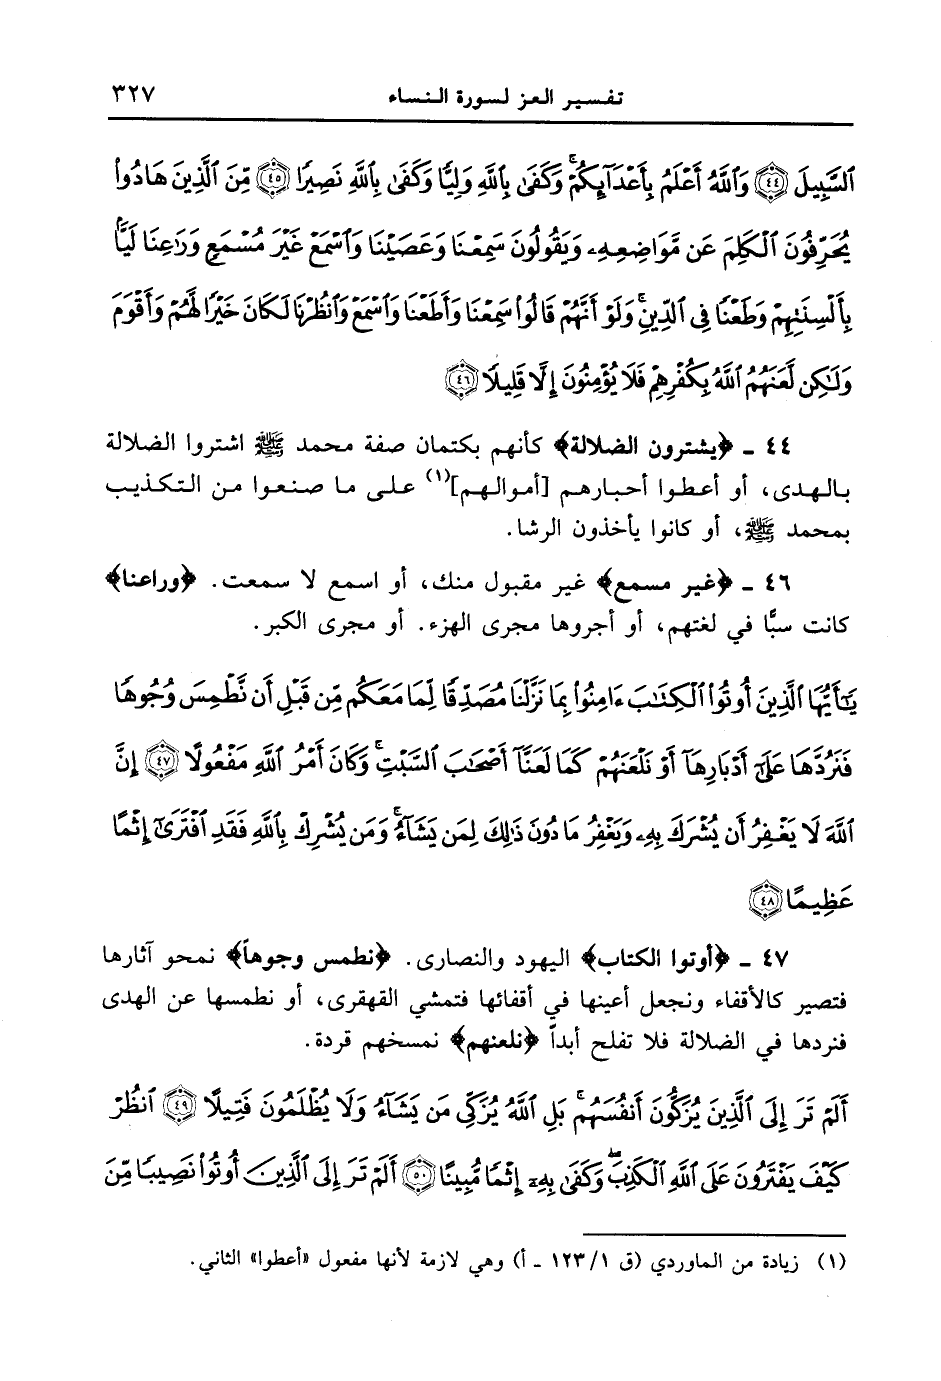 تفسير العز لسورة النساء ٣٢٧
ٱلسَّبِيلَ ﴿٤٤﴾ وَٱللَّهُ أَعْلَمُ بِأَعْدَآئِكُمْ ۚ وَكَفَىٰ بِٱللَّهِ وَلِيًّا وَكَفَىٰ بِٱللَّهِ نَصِيرًا ﴿٤٥﴾ مِّنَ ٱلَّذِينَ هَادُوا۟
يُحَرِّفُونَ ٱلْكَلِمَ عَن مَّوَاضِعِهِۦ وَيَقُولُونَ سَمِعْنَا وَعَصَيْنَا وَٱسْمَعْ غَيْرَ مُسْمَعٍ وَرَٰعِنَا لَيًّۢا
بِأَلْسِنَتِهِمْ وَطَعْنًا فِى ٱلدِّينِ ۚ وَلَوْ أَنَّهُمْ قَالُوا۟ سَمِعْنَا وَأَطَعْنَا وَٱسْمَعْ وَٱنظُرْنَا لَكَانَ خَيْرًا لَّهُمْ وَأَقْوَمَ
وَلَٰكِن لَّعَنَهُمُ ٱللَّهُ بِكُفْرِهِمْ فَلَا يُؤْمِنُونَ إِلَّا قَلِيلًا ﴿٤٦﴾
٤٤ ـ ﴿يشترون الضلالة﴾ كأنهم بكتمان صفة محمد ﷺ اشتروا الضلالة
بالهدى، أو أعطوا أحبارهم [أموالهم](١) على ما صنعوا من التكذيب
بمحمد ﷺ، أو كانوا يأخذون الرشا.
٤٦ ـ ﴿غير مسمع﴾ غير مقبول منك، أو اسمع لا سمعت. ﴿وراعنا﴾
كانت سبًّا في لغتهم، أو أجروها مجرى الهزء. أو مجرى الكبر.
يَٰٓأَيُّهَا ٱلَّذِينَ أُوتُوا۟ ٱلْكِتَٰبَ ءَامِنُوا۟ بِمَا نَزَّلْنَا مُصَدِّقًا لِّمَا مَعَكُم مِّن قَبْلِ أَن نَّطْمِسَ وُجُوهًا
فَنَرُدَّهَا عَلَىٰٓ أَدْبَارِهَآ أَوْ نَلْعَنَهُمْ كَمَا لَعَنَّآ أَصْحَٰبَ ٱلسَّبْتِ ۚ وَكَانَ أَمْرُ ٱللَّهِ مَفْعُولًا ﴿٤٧﴾ إِنَّ
ٱللَّهَ لَا يَغْفِرُ أَن يُشْرَكَ بِهِۦ وَيَغْفِرُ مَا دُونَ ذَٰلِكَ لِمَن يَشَآءُ ۚ وَمَن يُشْرِكْ بِٱللَّهِ فَقَدِ ٱفْتَرَىٰٓ إِثْمًا
عَظِيمًا ﴿٤٨﴾
٤٧ ـ ﴿أوتوا الكتاب﴾ اليهود والنصارى. ﴿نطمس وجوهاً﴾ نمحو آثارها
فتصير كالأقفاء ونجعل أعينها في أقفائها فتمشي القهقرى، أو نطمسها عن الهدى
فنردها في الضلالة فلا تفلح أبداً ﴿نلعنهم﴾ نمسخهم قردة.
أَلَمْ تَرَ إِلَى ٱلَّذِينَ يُزَكُّونَ أَنفُسَهُم ۚ بَلِ ٱللَّهُ يُزَكِّى مَن يَشَآءُ وَلَا يُظْلَمُونَ فَتِيلًا ﴿٤٩﴾ ٱنظُرْ
كَيْفَ يَفْتَرُونَ عَلَى ٱللَّهِ ٱلْكَذِبَ ۖ وَكَفَىٰ بِهِۦٓ إِثْمًا مُّبِينًا ﴿٥٠﴾ أَلَمْ تَرَ إِلَى ٱلَّذِينَ أُوتُوا۟ نَصِيبًا مِّنَ
(١) زيادة من الماوردي (ق ١٢٣/١ ـ أ) وهي لازمة لأنها مفعول «أعطوا» الثاني.